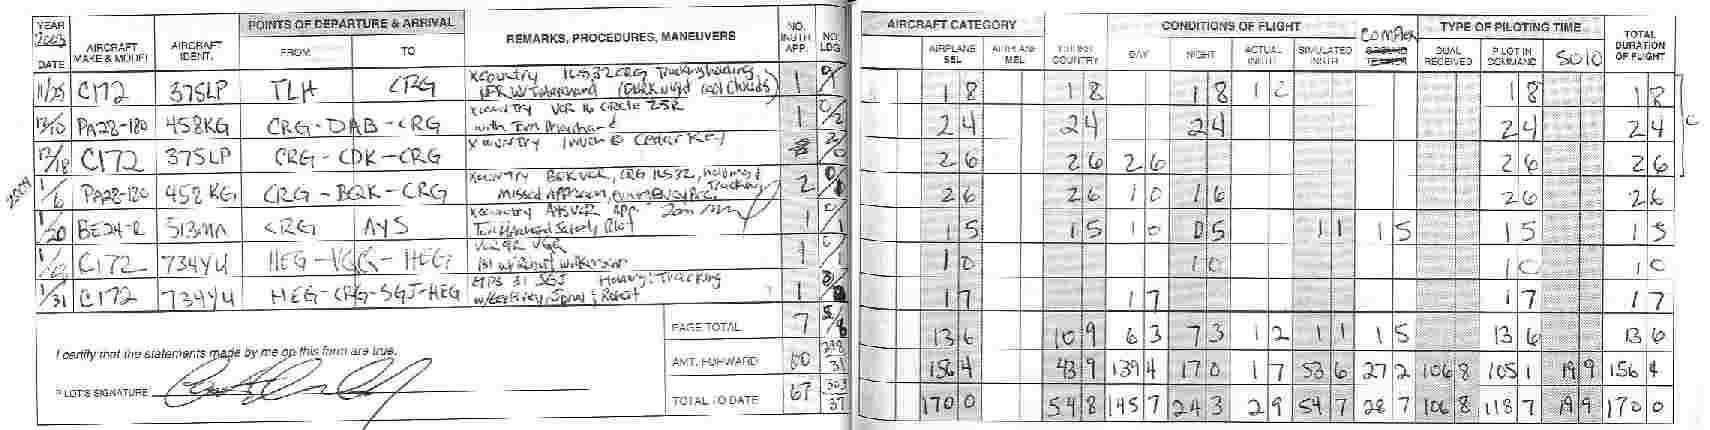 YEAR 2003 DATE AIRCRAFT MAKE & MODEL AIRCRAFT IDENT. POINTS OF DEPARTURE & ARRIVAL FROM TO REMARKS, PROCEDURES, MANEUVERS NO. INSTR. APP. NO. LDG AIRCRAFT CATEGORY AIRPLANE SEL AIRPLANE MEL CROSS COUNTRY CONDITIONS OF FLIGHT DAY NIGHT ACTUAL INSTR SIMULATED INSTR COMPLEX TYPE OF PILOTING TIME DUAL RECEIVED PILOT IN COMMAND SOLO TOTAL DURATION OF FLIGHT
11/25 C172 375LP TLH CRG xcountry ILS 32 CRG Tracking holding 1 0/1 1 8 1 8 1 8 1 2 1 8 1 8
12/10 PA28-180 458KG CRG-DAB-CRG xcountry VOR 16 circle 25R with Tom 1 0/2 2 4 2 4 2 4 2 4 2 4
12/18 C172 375LP CRG-CDK-CRG xcountry lunch @ Cedar Key 2 6 2 6 2 6 2 6 2 6
2004
1/6 PA28-180 458KG CRG-BQK-CRG xcountry BQK VOR, CRG ILS 32, holding & Tracking missed Approach 2 2 6 2 6 1 0 1 6 2 6 2 6
1/20 BE24-R 513MA CRG AYS xcountry AYS VOR App. Safety Pilot 1 0/1 1 5 1 5 1 0 0 5 1 1 1 5 1 5 1 5
C172 734YU HEG-VQQ-HEG VQQ 1 1 0 1 0 1 0 1 0
1/31 C172 734YU HEG-CRG-SGJ-HEG GPS 31 SGJ Holding, Tracking 1 1 7 1 7 1 7 1 7
PAGE TOTAL 7 13 6 10 9 6 3 7 3 1 2 1 1 1 5 13 6 13 6
I certify that the statements made by me on this form are true.
AMT. FORWARD 60 298/31 156 4 43 9 139 4 17 0 1 7 53 6 27 2 106 8 105 1 19 9 156 4
PILOT'S SIGNATURE
TOTAL TO DATE 67 303/37 170 0 54 8 145 7 24 3 2 9 54 7 28 7 106 8 118 7 19 9 170 0